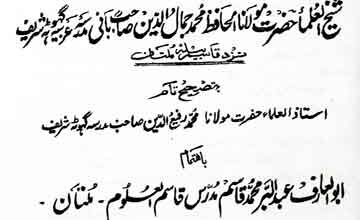 شیخ العلماء حضرت مولانا الحافظ محمد جمال الدین صاحب بانی مدرسہ عربیہ گھوٹہ شریف
نزد قاسم بیلہ ملتان
بتصحیح تام
استاذ العلماء حضرت مولانا محمد رفیع الدین صاحب مدرسہ گھوٹہ شریف
باہتمام
ابو العارف عبد البر محمد قاسم مدرس قاسم العلوم - ملتان -